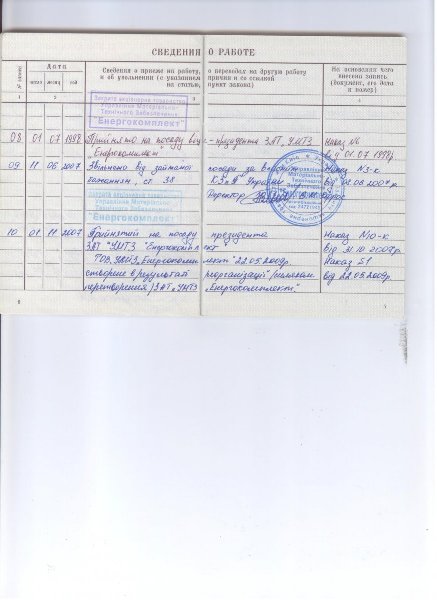 СВЕДЕНИЯ О РАБОТЕ
№ записи
Дата
число месяц год
Сведения о приеме на работу, о переводах на другую работу
и об увольнении (с указанием причин и со ссылкой
на статью, пункт закона)
На основании чего
внесена запись
(документ, его дата
и номер)
1 2 3 4
Закрите акціонерне товариство
Управління Матеріально-
Технічного Забезпечення
"Енергокомплект"
08 01 07 1998 Прийнято на посаду віце-президента ЗАТ „УМТЗ Наказ №6
„Енергокомплект" від 01.07.1998р.
09 11 06 2007 Звільнено від займаної посади за власним Наказ №3-к
бажанням, ст. 38 КЗпП України від 2007р.
Директор
Управління Матеріально-
Технічного Забезпечення
"Енергокомплект"
10 01 11 2007 Прийнятий на посаду президента Наказ №10-к
ЗАТ "УМТЗ "Енергокомплект від 31.10.2007р.
ТОВ „УМТЗ „Енергокомплект" 22.05.2009р. Наказ 51
створене в результаті реорганізації /шляхом від 22.05.2009р
перетворення/ ЗАТ „УМТЗ „Енергокомплект".